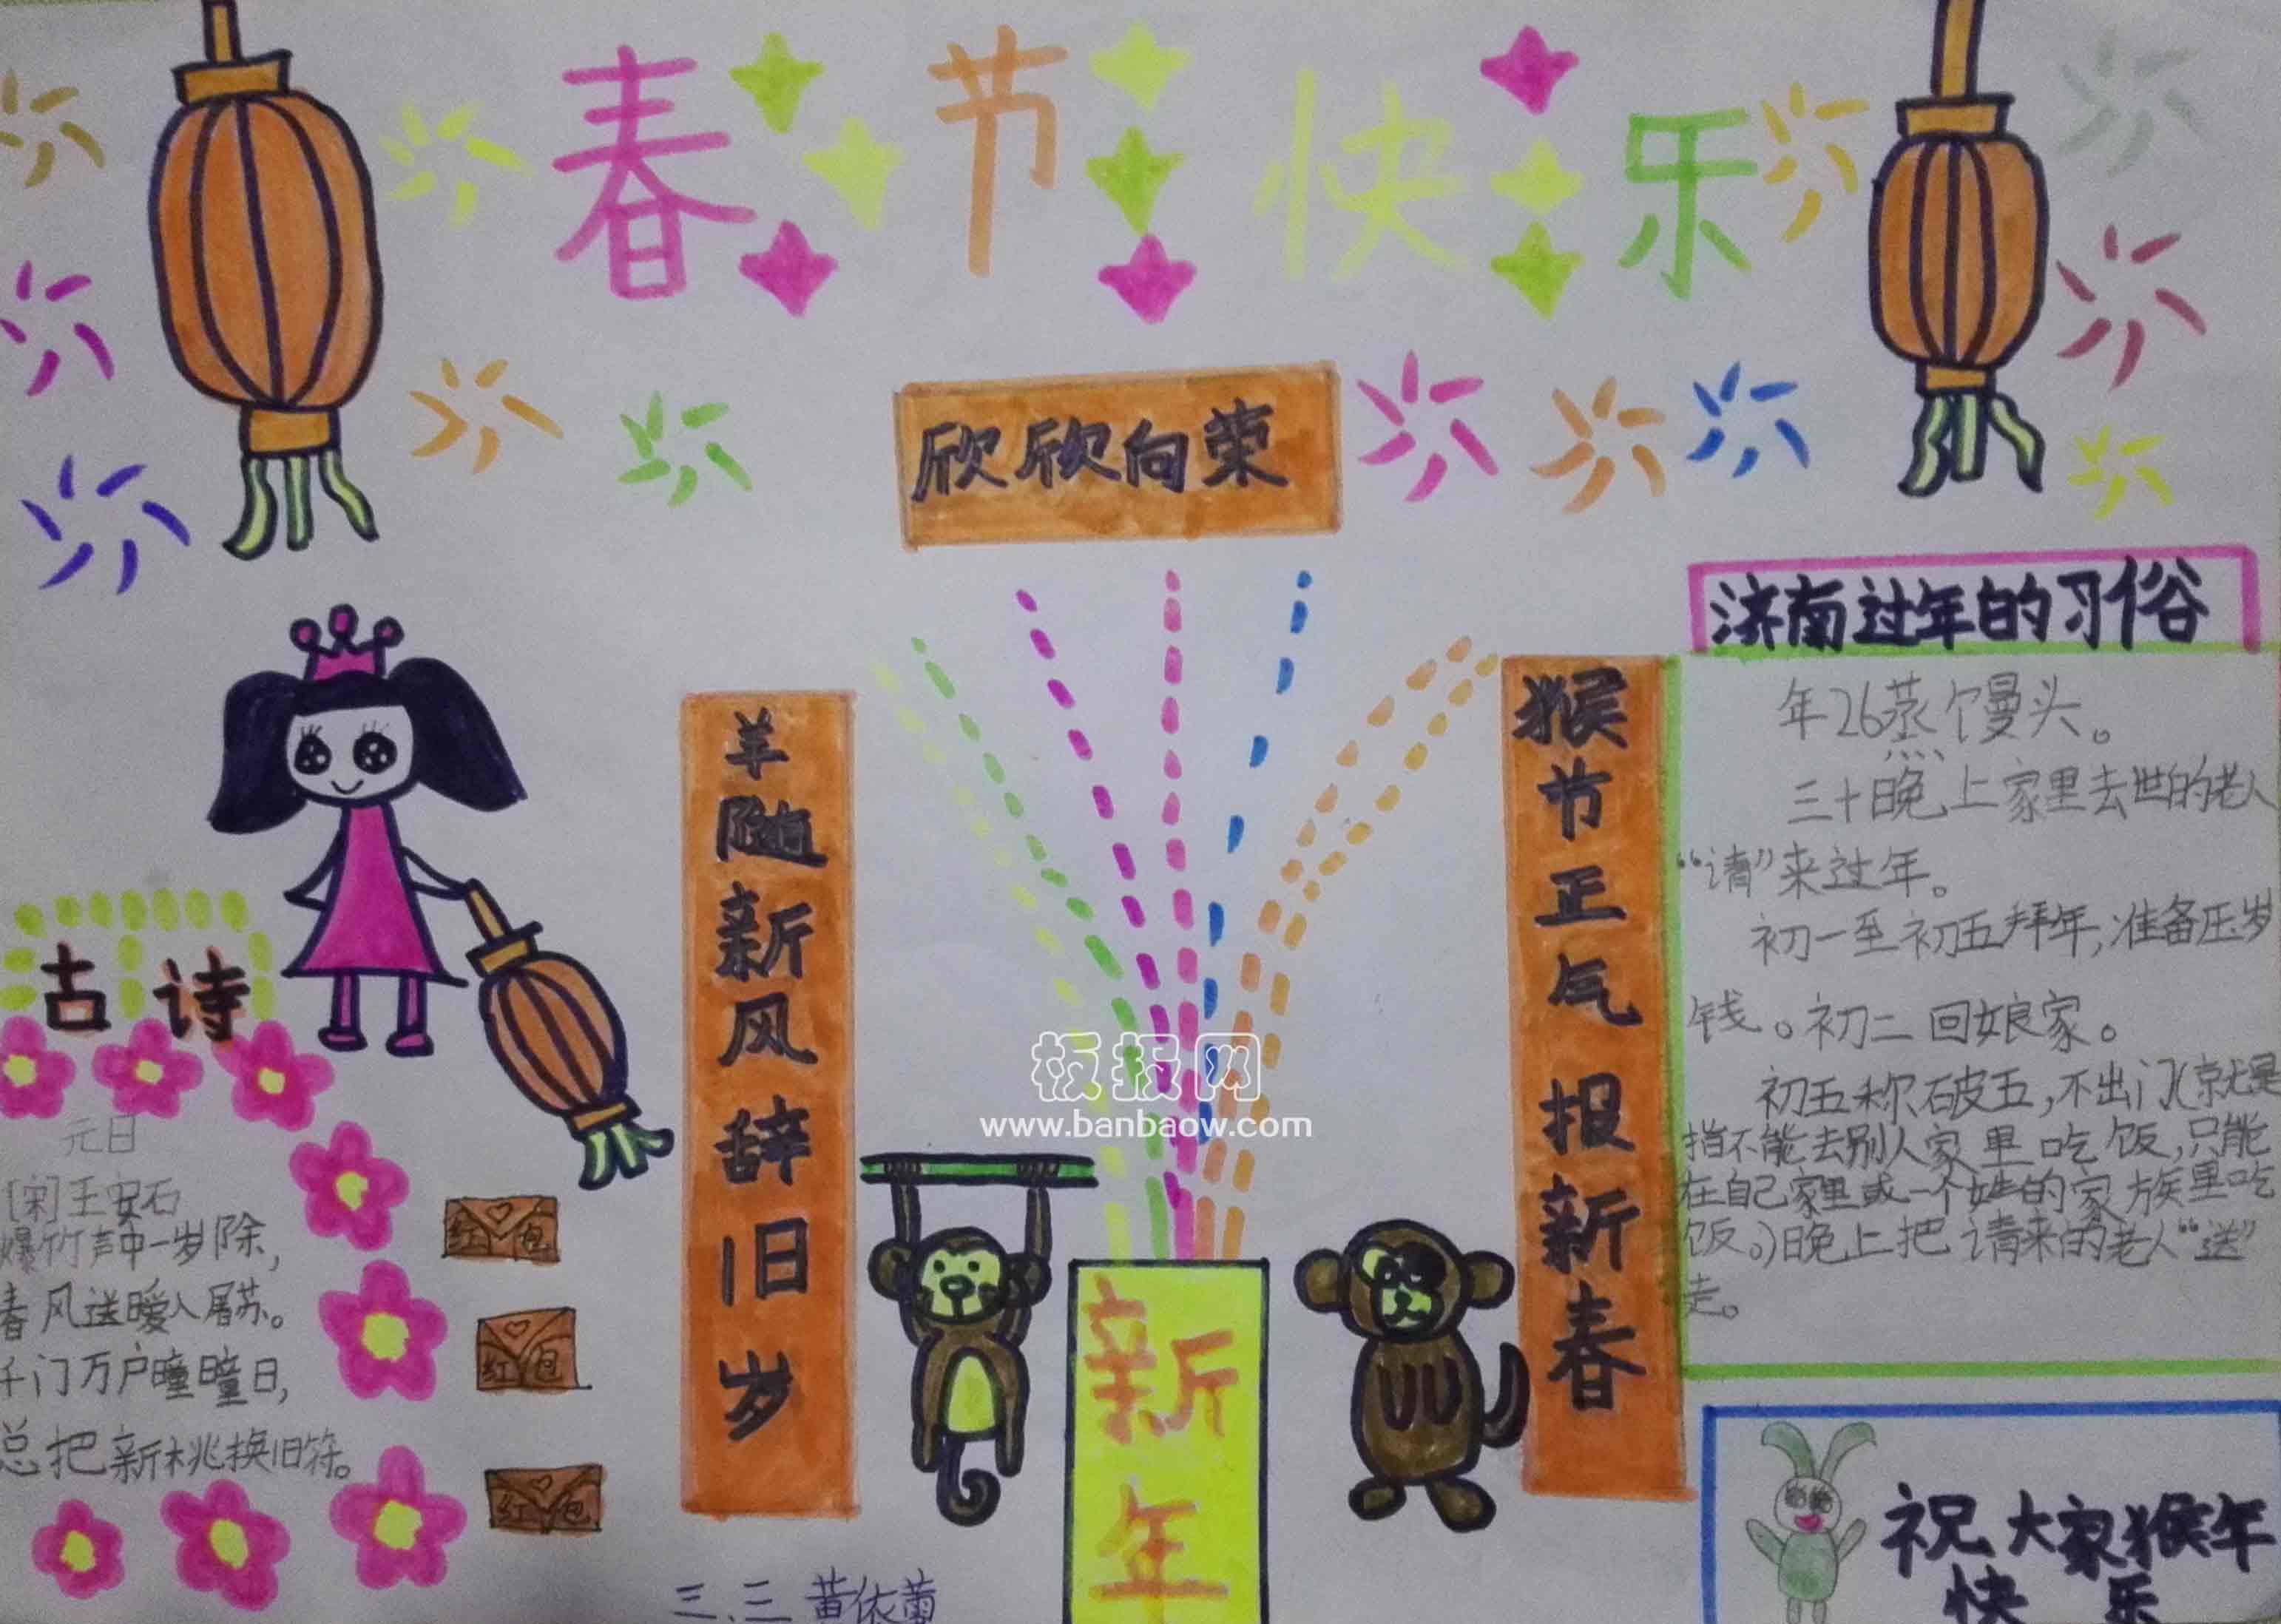 春节快乐
欣欣向荣
羊随新风辞旧岁
猴节正气报新春
济南过年的习俗
年26蒸个馒头。
三十晚上家里去世的老人
“请”来过年。
初一至初五拜年,准备压岁
钱。初二回娘家。
初五称破五,不出门(就是
指不能去别人家里吃饭,只能
在自己家里或一个姓的家族里吃
饭。)晚上把请来的老人“送”
走。
古诗
元日
[宋]王安石
爆竹声中一岁除,
春风送暖入屠苏。
千门万户曈曈日,
总把新桃换旧符。
红包
红包
红包
板报网
www.banbaow.com
新年
祝大家猴年
快乐
三.三 黄依